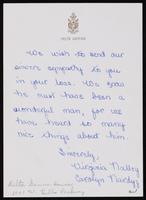 DELTA GAMMA
We wish to send our
sincere sympathy to you
in your loss. We know
he must have been a
wonderful man, for we
have heard so many
nice things about him.
Sincerely,
Virginia
Carolyn
Delta Gamma House